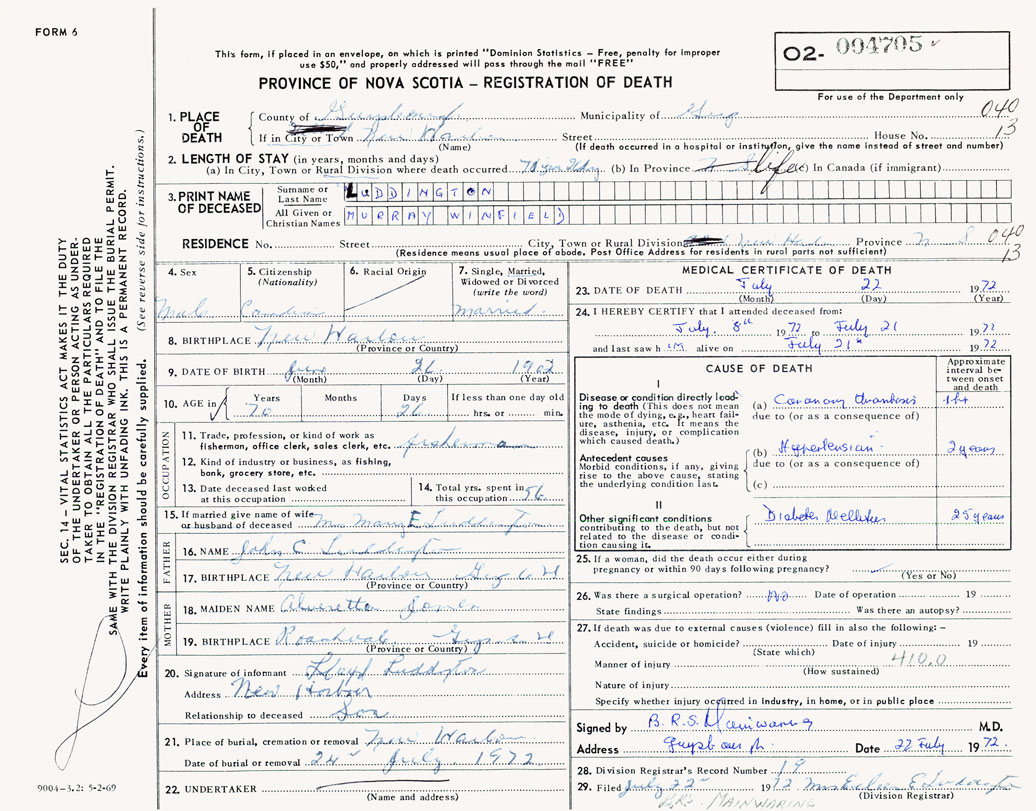 FORM 6
This form, if placed in an envelope, on which is printed "Dominion Statistics – Free, penalty for improper
use $50," and properly addressed will pass through the mail "FREE"
PROVINCE OF NOVA SCOTIA – REGISTRATION OF DEATH
02- 004705
For use of the Department only
SEC. 14 – VITAL STATISTICS ACT MAKES IT THE DUTY
OF THE UNDERTAKER OR PERSON ACTING AS UNDER-
TAKER TO OBTAIN ALL THE PARTICULARS REQUIRED
IN THE "REGISTRATION OF DEATH" AND TO FILE THE
SAME WITH THE DIVISION REGISTRAR WHO SHALL ISSUE THE BURIAL PERMIT.
WRITE PLAINLY WITH UNFADING INK. THIS IS A PERMANENT RECORD.
Every item of information should be carefully supplied. (See reverse side for instructions.)
1. PLACE OF DEATH
County of Guysborough Municipality of Guys 040
If in City or Town New Harbour Street House No. 13
(Name) (If death occurred in a hospital or institution, give the name instead of street and number)
2. LENGTH OF STAY (in years, months and days)
(a) In City, Town or Rural Division where death occurred 70 yrs 26 day (b) In Province N S life (c) In Canada (if immigrant)
3. PRINT NAME OF DECEASED
Surname or Last Name LUDDINGTON
All Given or Christian Names MURRAY WINFIELD
RESIDENCE No. Street City, Town or Rural Division New Harbour Province N S 040
(Residence means usual place of abode. Post Office Address for residents in rural parts not sufficient) 13
4. Sex 5. Citizenship (Nationality) 6. Racial Origin 7. Single, Married, Widowed or Divorced (write the word)
Male Canadian married
8. BIRTHPLACE New Harbour
(Province or Country)
9. DATE OF BIRTH June 26 1902
(Month) (Day) (Year)
10. AGE in Years Months Days If less than one day old
70 26 hrs. or min.
OCCUPATION
11. Trade, profession, or kind of work as
fisherman, office clerk, sales clerk, etc. fisherman
12. Kind of industry or business, as fishing,
bank, grocery store, etc.
13. Date deceased last worked
at this occupation
14. Total yrs. spent in
this occupation 56
15. If married give name of wife
or husband of deceased Mrs Mary E Luddington
FATHER
16. NAME John C Luddington
17. BIRTHPLACE New Harbour Guys Co N S
(Province or Country)
MOTHER
18. MAIDEN NAME Alveretta Jones
19. BIRTHPLACE Roachvale Guys Co N S
(Province or Country)
20. Signature of informant Lloyd Luddington
Address New Harbour
Relationship to deceased Son
21. Place of burial, cremation or removal New Harbour
Date of burial or removal 24 July 1972
22. UNDERTAKER
(Name and address)
9004-3.2: 5-2-69
MEDICAL CERTIFICATE OF DEATH
23. DATE OF DEATH July 22 1972
(Month) (Day) (Year)
24. I HEREBY CERTIFY that I attended deceased from:
July 8th 1972 to July 21 1972
and last saw him alive on July 21st 1972
CAUSE OF DEATH
Approximate interval between onset and death
I
Disease or condition directly lead-
ing to death (This does not
mean the mode of dying, e.g., heart fail-
ure, asthenia, etc. It means the
disease, injury, or complication
which caused death.)
(a) Coronary thrombosis 1 hr
due to (or as a consequence of)
Antecedent causes
Morbid conditions, if any, giving
rise to the above cause, stating
the underlying condition last.
(b) Hypertension 2 years
due to (or as a consequence of)
(c)
II
Other significant conditions
contributing to the death, but not
related to the disease or condi-
tion causing it.
Diabetes Mellitus 25 years
25. If a woman, did the death occur either during
pregnancy or within 90 days following pregnancy?
(Yes or No)
26. Was there a surgical operation? No Date of operation 19
State findings Was there an autopsy?
27. If death was due to external causes (violence) fill in also the following: –
Accident, suicide or homicide? Date of injury 19
(State which)
Manner of injury 410.0
(How sustained)
Nature of injury
Specify whether injury occurred in Industry, in home, or in public place
Signed by B.R.S. Mainwaring M.D.
Address Guysborough Date 22 July 1972.
28. Division Registrar's Record Number 19
29. Filed July 22 1972 Mrs Eileen E Luddington
(Division Registrar)
BRS. MAINWARING